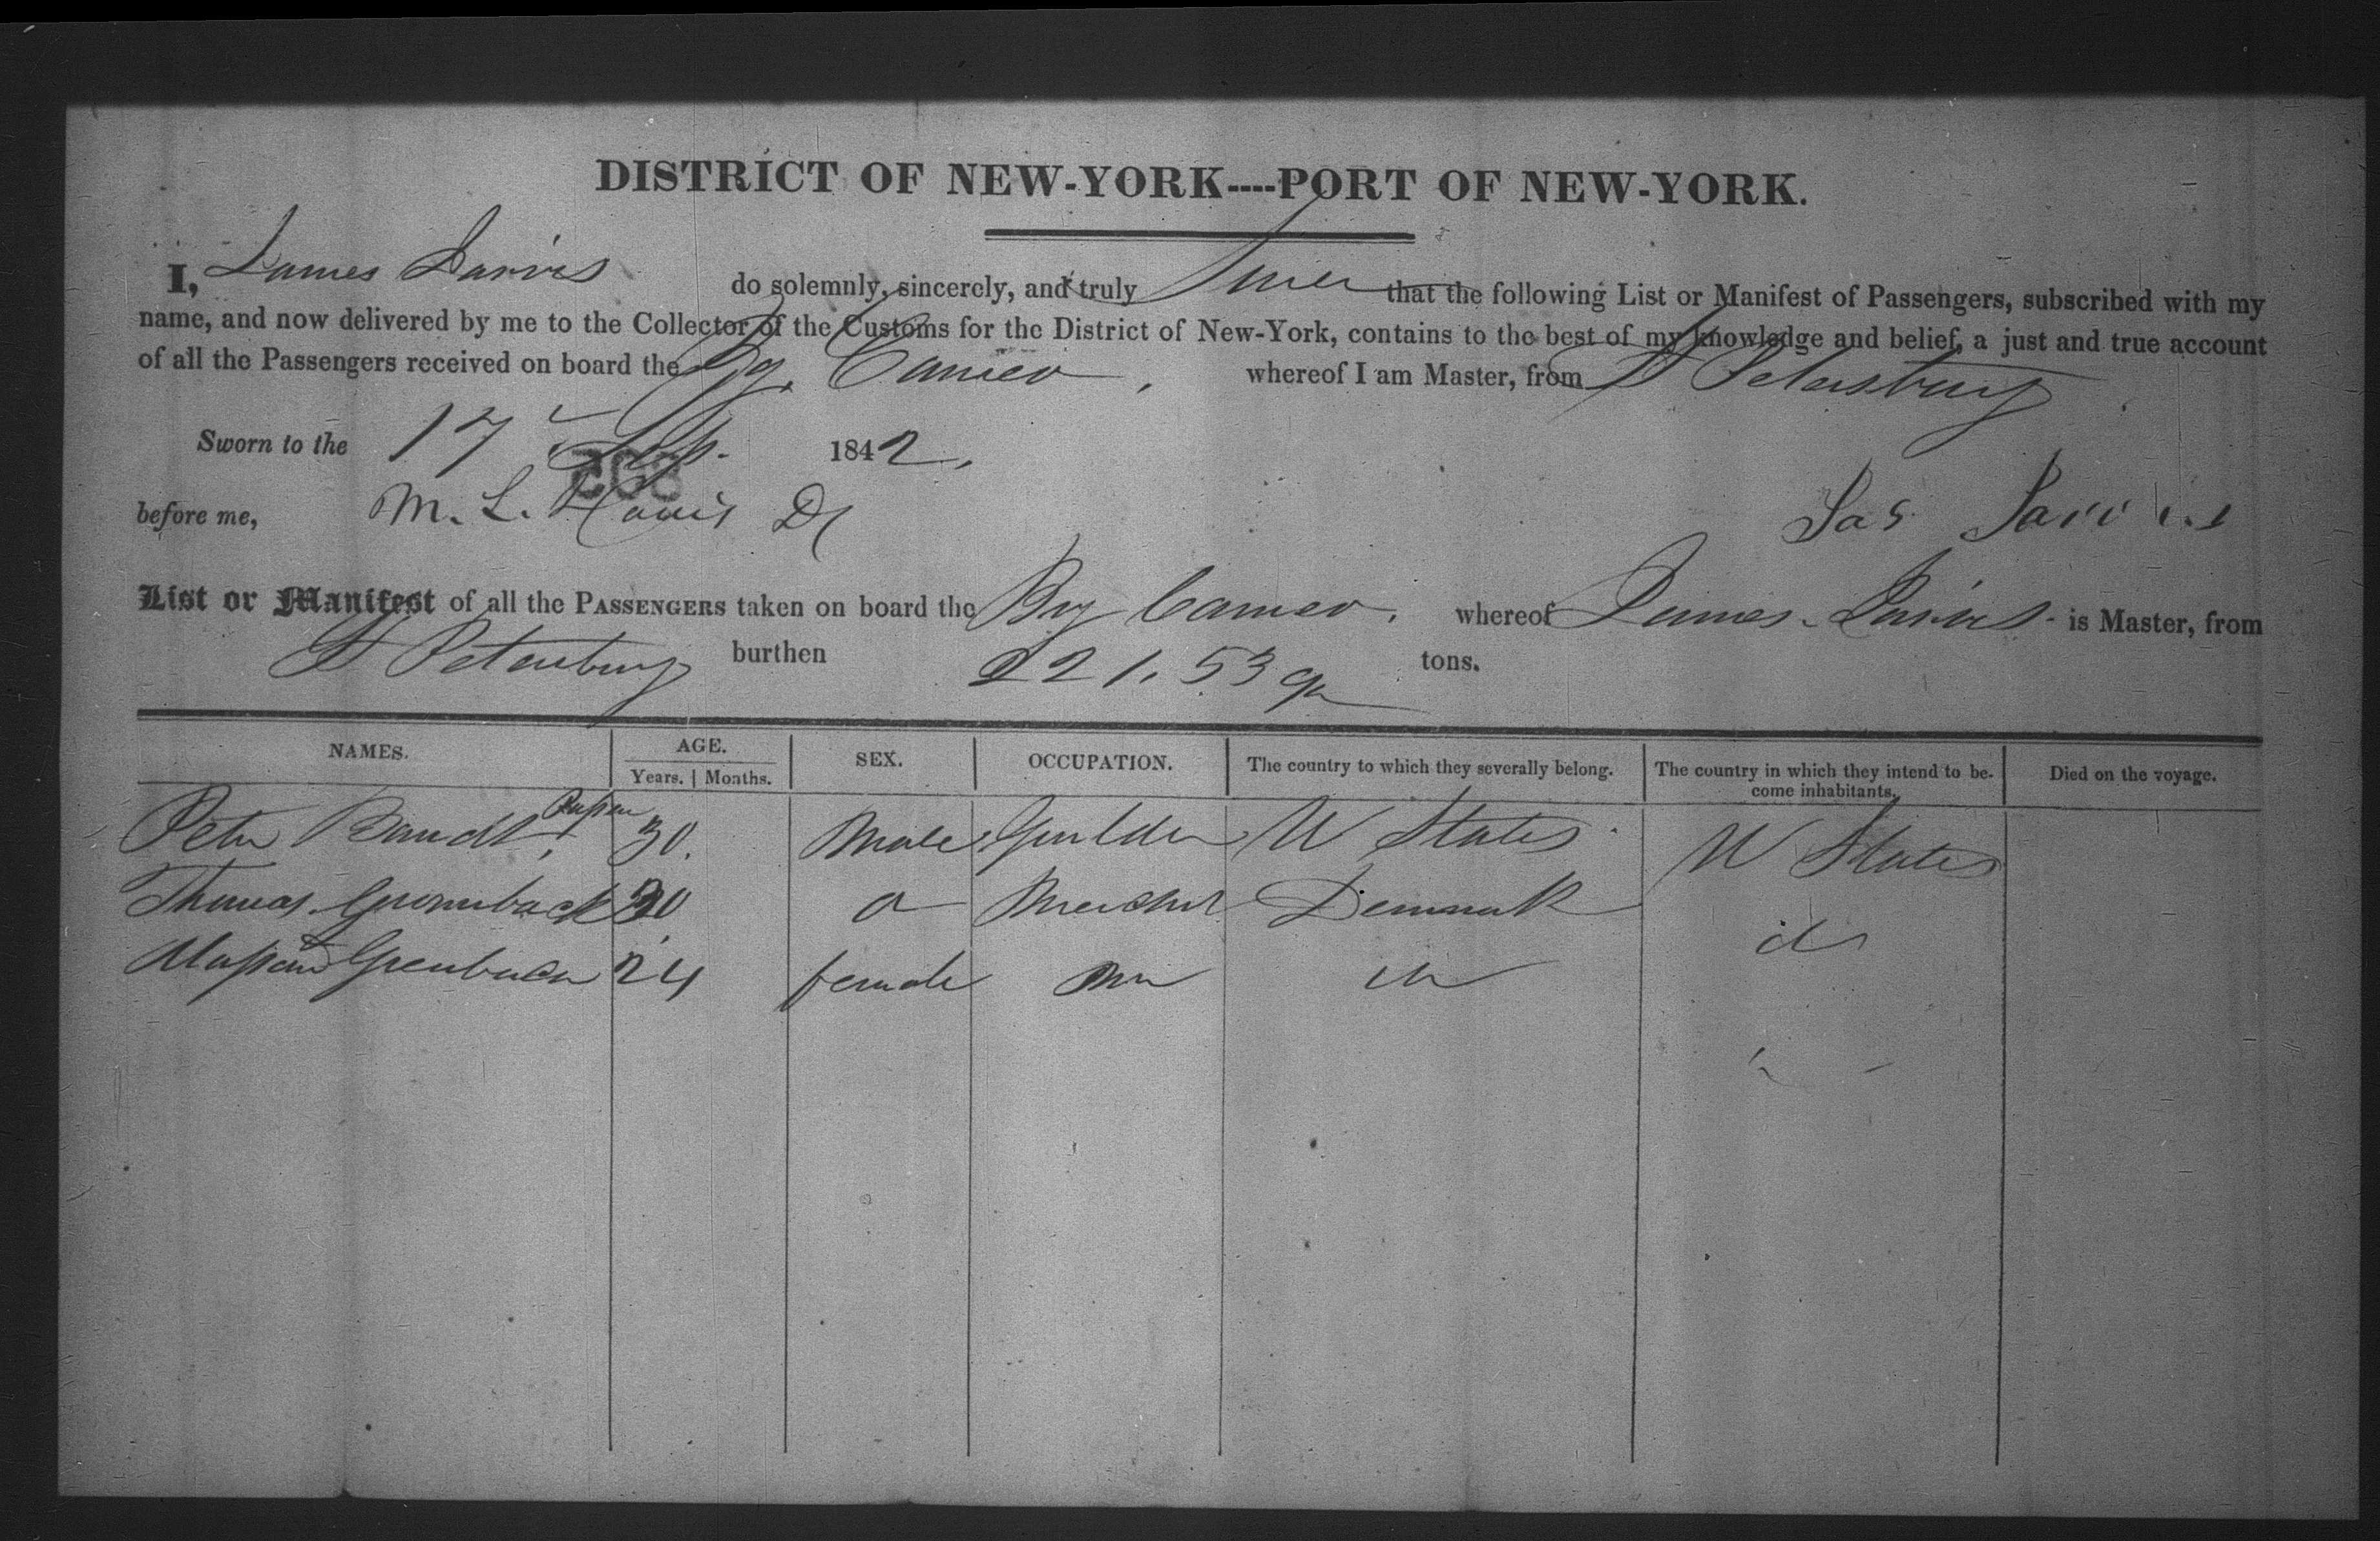 DISTRICT OF NEW-YORK----PORT OF NEW-YORK.
I, James Jarvis do solemnly, sincerely, and truly swear that the following List or Manifest of Passengers, subscribed with my
name, and now delivered by me to the Collector of the Customs for the District of New-York, contains to the best of my knowledge and belief, a just and true account
of all the Passengers received on board the Bg. Cameo, whereof I am Master, from St Petersburg
Sworn to the 17 Sep. 1842.
before me, M. L. Davis Jas Jarvis
List or Manifest of all the PASSENGERS taken on board the Brg Cameo. whereof James Jarvis is Master, from
St Petersburg burthen 221.53 tons.
NAMES. AGE. SEX. OCCUPATION. The country to which they severally belong. The country in which they intend to be- Died on the voyage.
Years. | Months. come inhabitants.
Peter Brandt 30. Male U States U States
Thomas 30 Denmark do
24 female